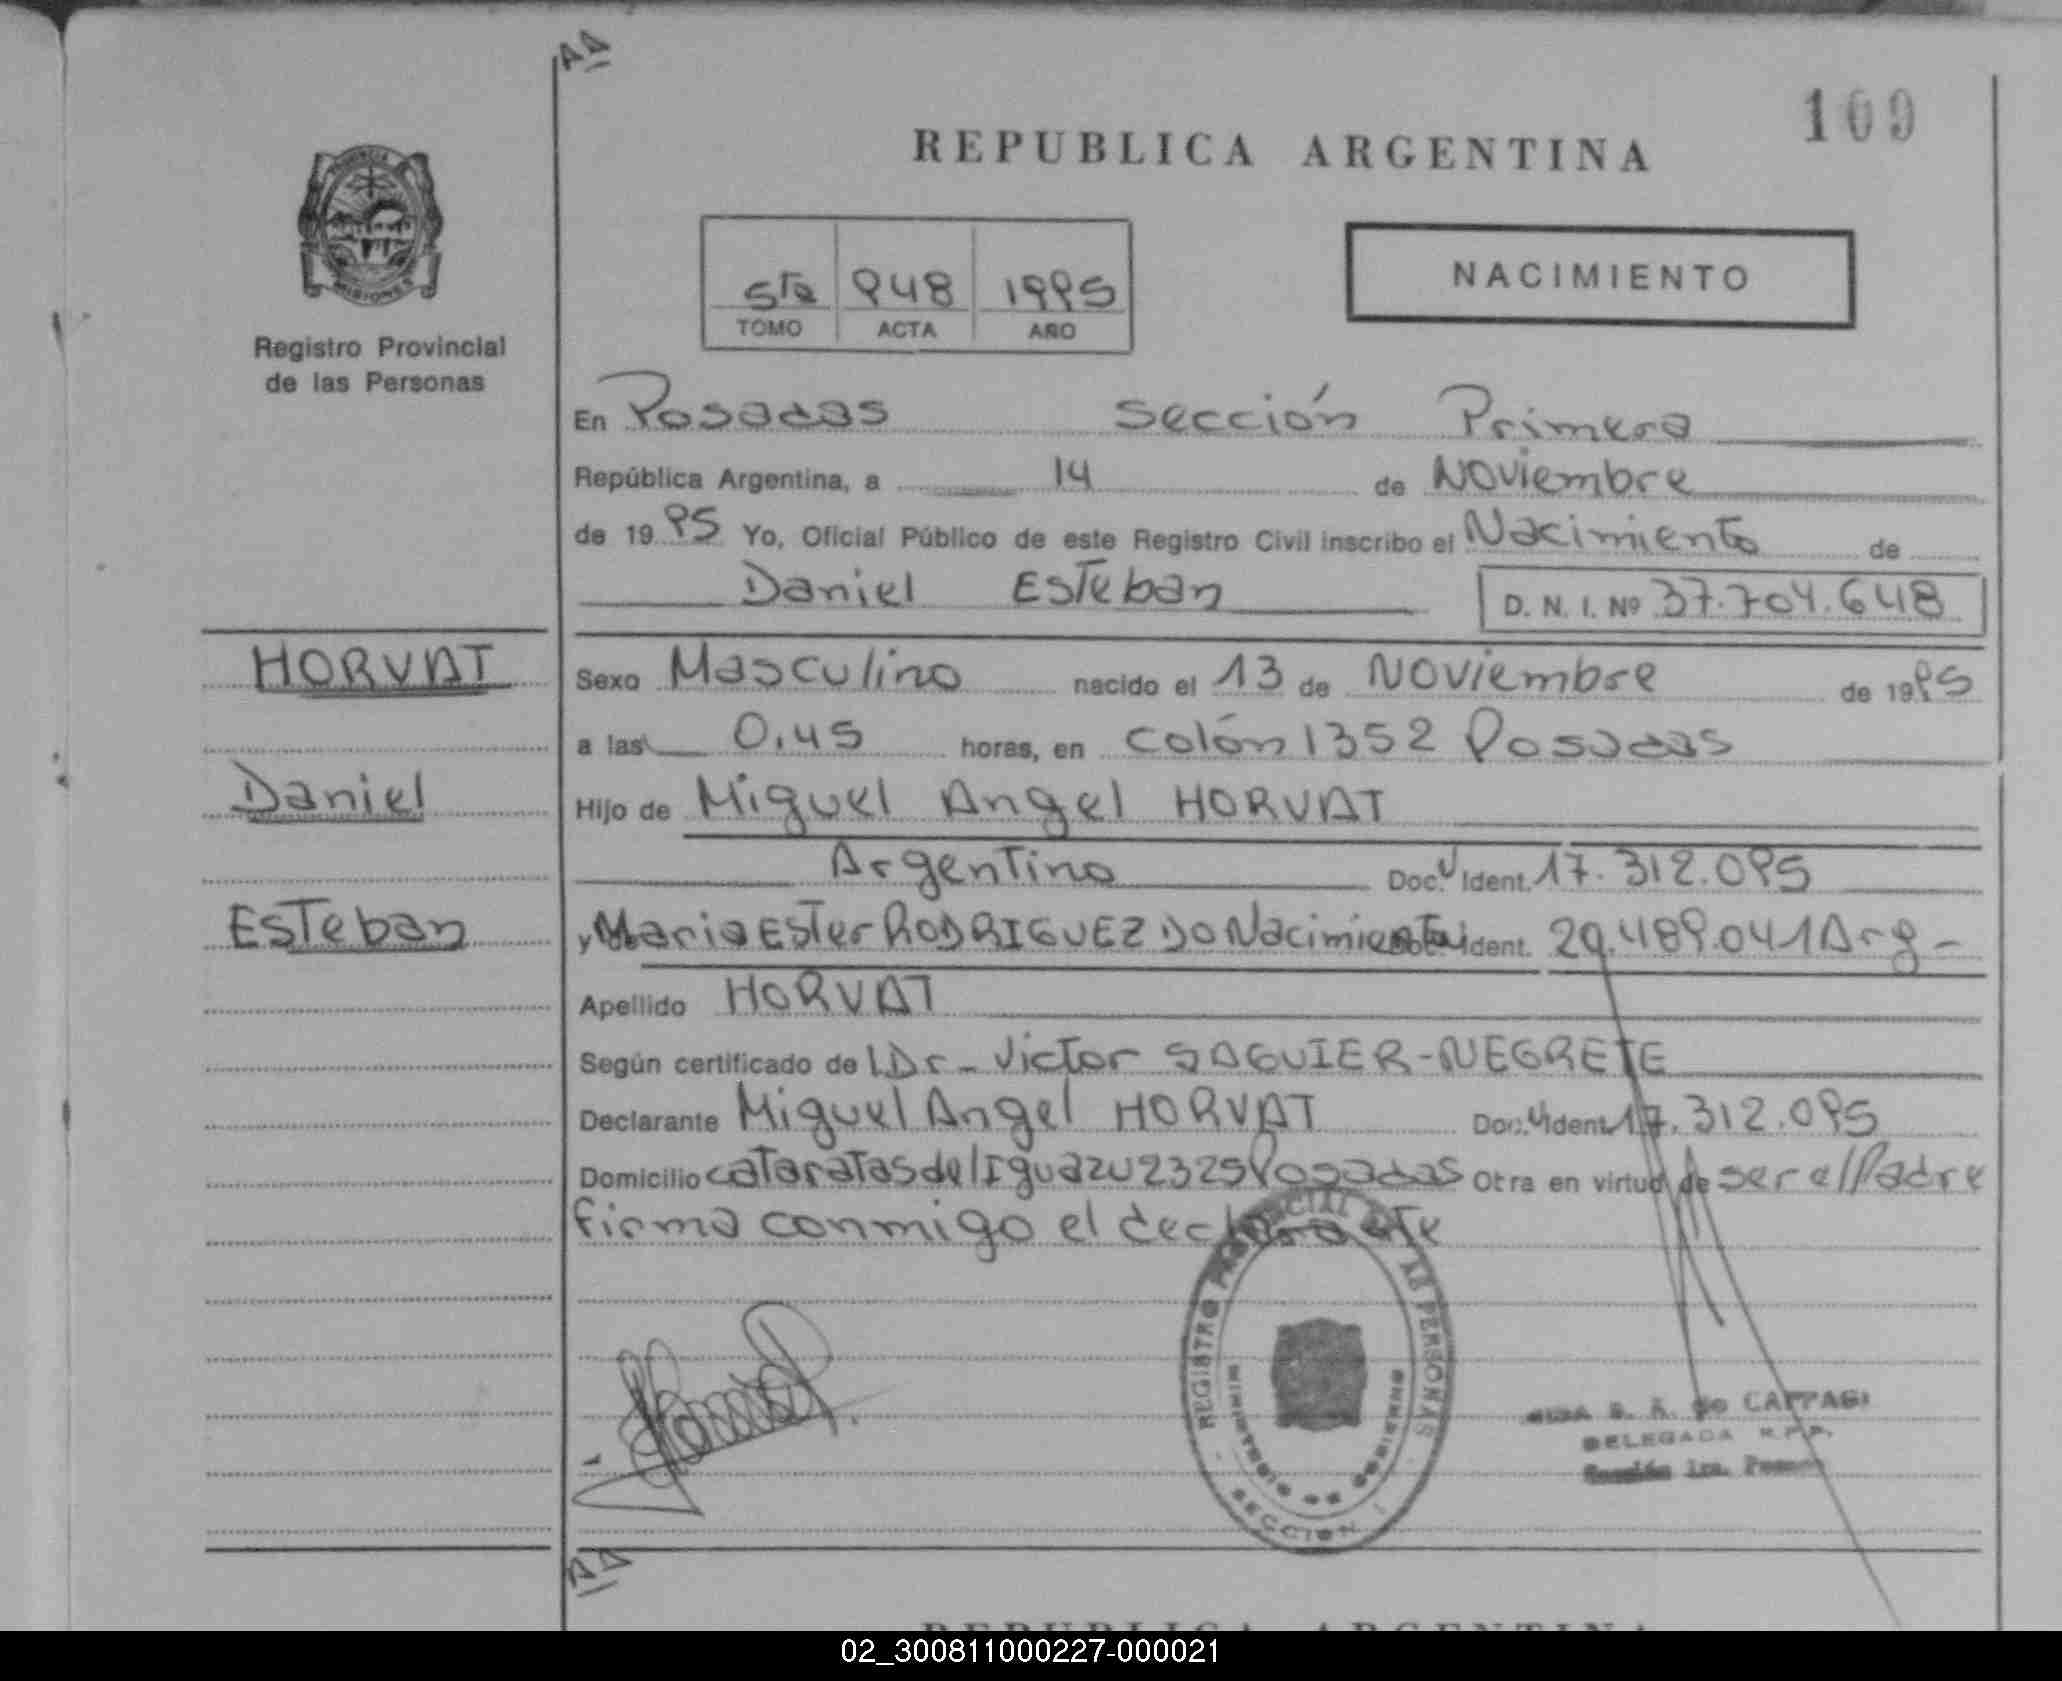 AA
109
REPUBLICA ARGENTINA
PROVINCIA
MISIONES
Registro Provincial
de las Personas
5ta 948 1995
TOMO ACTA AÑO
NACIMIENTO
En Posadas Sección Primera
República Argentina, a 14 de Noviembre
de 19 95 Yo, Oficial Público de este Registro Civil inscribo el Nacimiento de
Daniel Esteban D. N. I. Nº 37.704.648
HORVAT
Daniel
Esteban
Sexo Masculino nacido el 13 de Noviembre de 19 95
a las 0,45 horas, en Colón 1352 Posadas
Hijo de Miguel Angel HORVAT
Argentino Doc. Ident. 17.312.095
y Maria Ester RODRIGUEZ DO Nacimiento Ident. 20.489.041 Arg-
Apellido HORVAT
Según certificado de Dr- Victor SAGUIER-NEGRETE
Declarante Miguel Angel HORVAT Doc. Ident. 17.312.095
Domicilio cataratas del Iguazu 2325 Posadas Otra en virtud de ser el Padre
firma conmigo el declarante
REGISTRO PROVINCIAL AS PERSONAS
MINISTERIO DE GOBIERNO
SECCION 1
de CAPPAGI
DELEGADA R.P.P.
Sección 1ra.
AA
REPUBLICA ARGENTINA
02_300811000227-000021